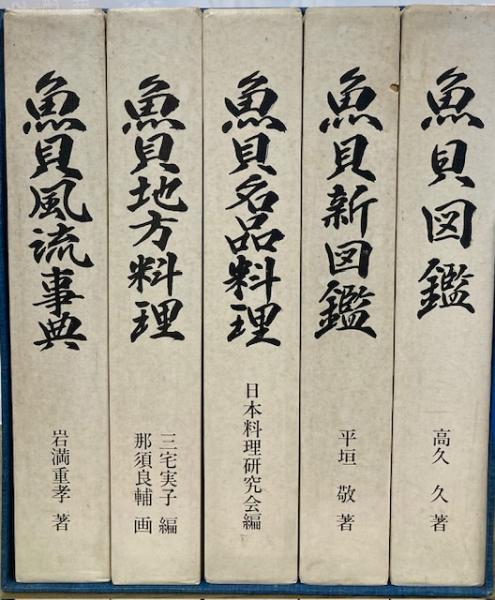 魚貝図鑑
高久 久 著
魚貝新図鑑
平垣 敬 著
魚貝名品料理
日本料理研究会編
魚貝地方料理
三宅実子 編
那須良輔 画
魚貝風流事典
岩満重孝 著